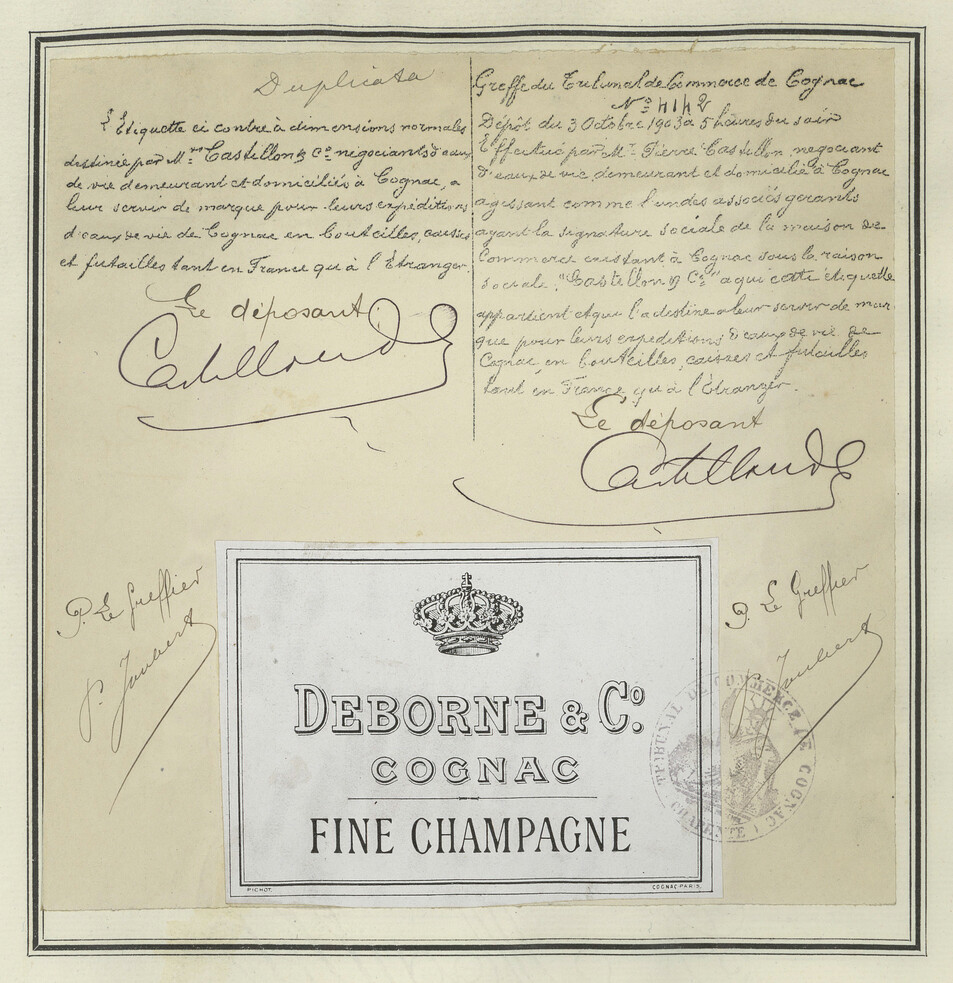 Duplicata
L'Etiquette ci contre à dimensions normales
destinée par M.rs Castillon & Co négociants d'eaux
de vie demeurant et domiciliés à Cognac, a
leur servir de marque pour leurs expéditions
d'eaux de vie de Cognac en bouteilles, caisses
et futailles tant en France qu'à l'Étranger.
Le déposant
Castillon & Co
Greffe du Tribunal de Commerce de Cognac
No 4142
Dépôt du 3 Octobre 1903 à 5 heures du soir
Effectué par Mr Pierre Castillon, négociant
d'eaux de vie, demeurant et domicilié à Cognac
agissant comme l'un des associés gérants
ayant la signature sociale de la maison de
Commerce existant à Cognac sous la raison
sociale "Castillon & Co" a qui cette étiquette
appartient et qui l'a destine a leur servir de mar
que pour leurs expéditions d'eaux de vie de
Cognac, en bouteilles, caisses et futailles
tant en France, qu'à l'Étranger.
Le déposant
Castillon & Co
P. Le Greffier
P. Joubert
P. Le Greffier
P. Joubert
DEBORNE & Co.
COGNAC
FINE CHAMPAGNE
PICHOT.
COGNAC-PARIS.
TRIBUNAL DE COMMERCE DE COGNAC
(CHARENTE)